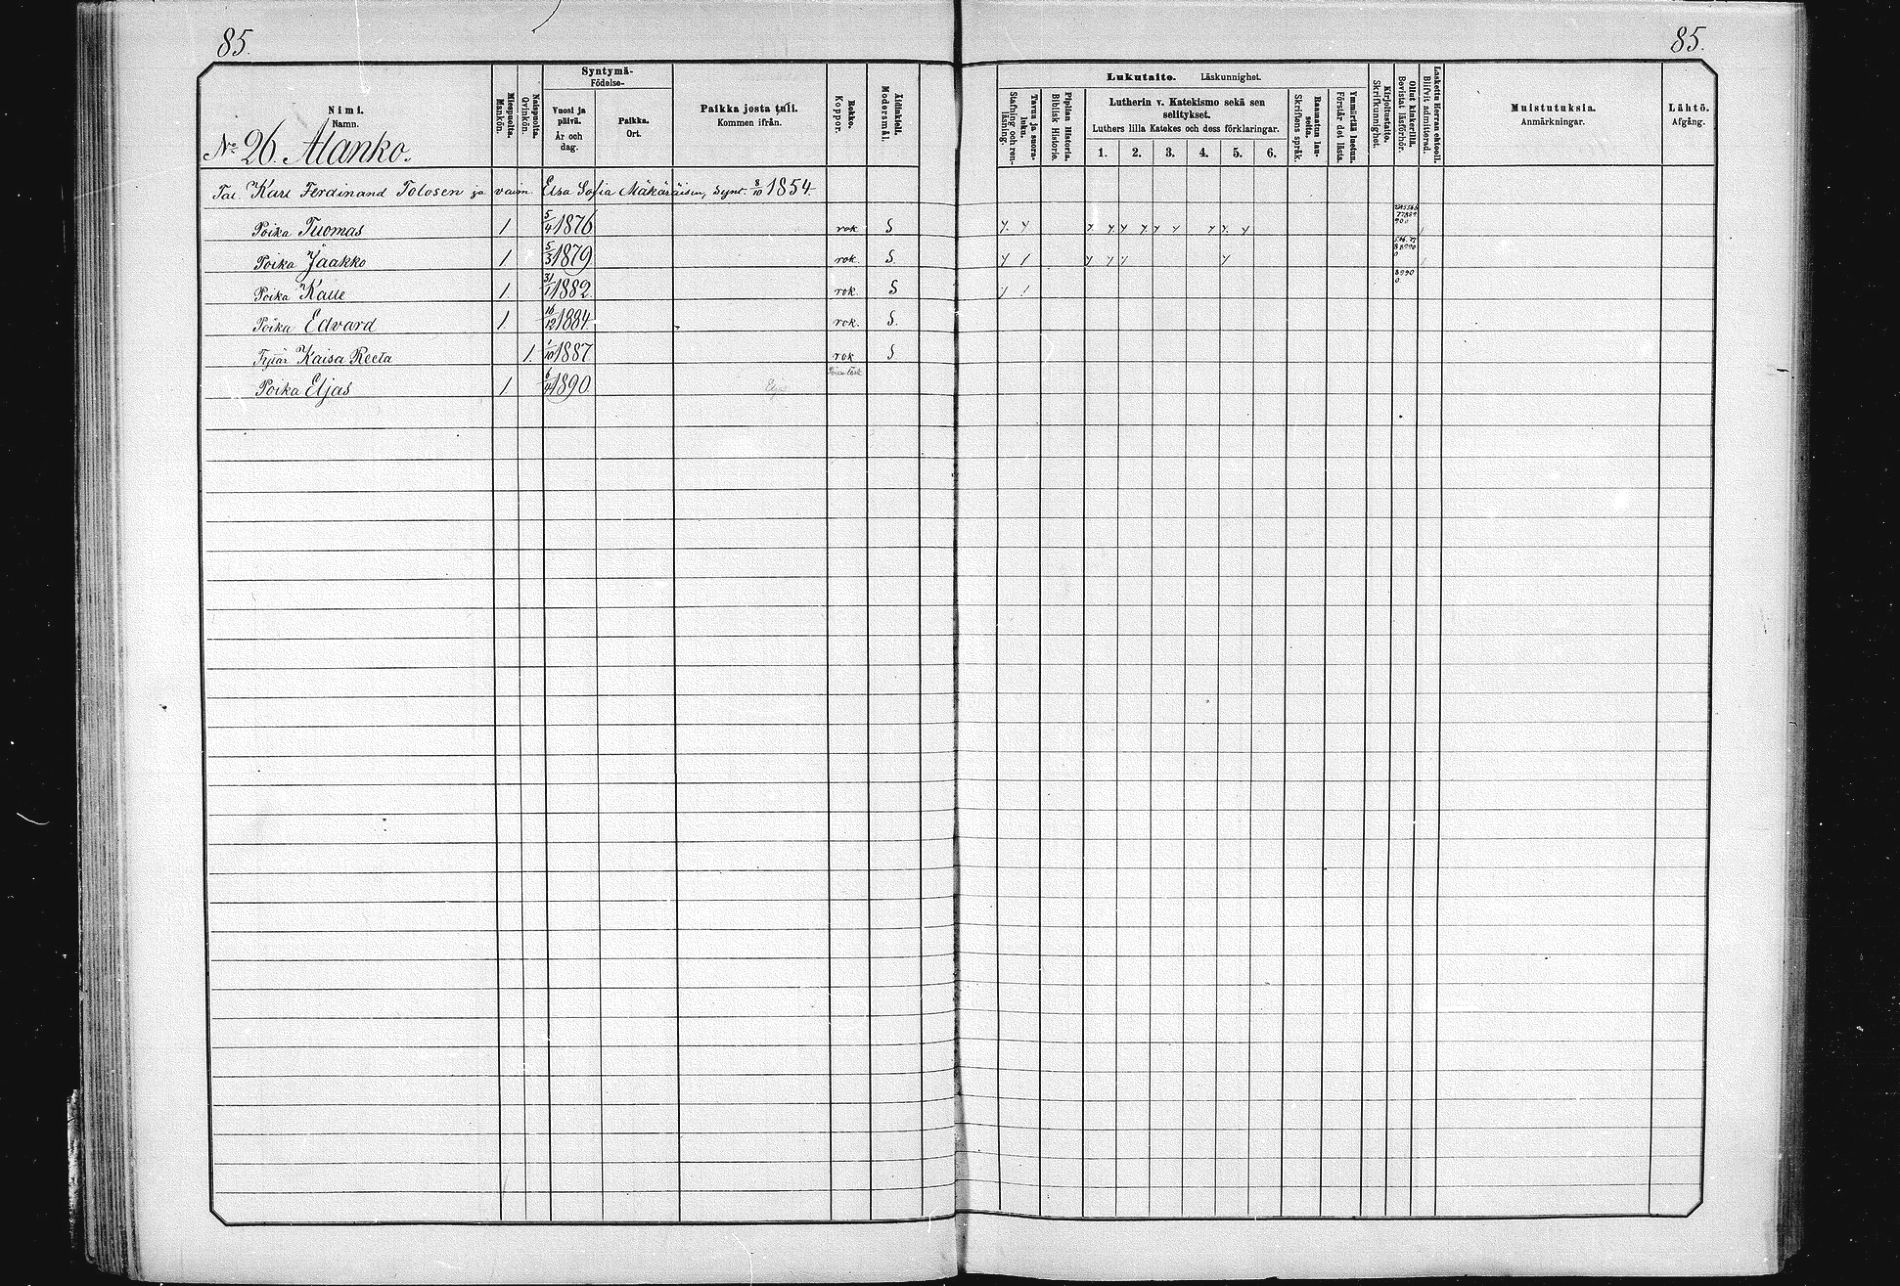 85.
85.
Nimi.
Namn.
No 26. Alanko.
Miespuolta.
Mankön.
Naispuolta.
Qvinkön.
Syntymä-
Födelse-
Vuosi ja päivä.
År och dag.
Paikka.
Ort.
Paikka josta tuli.
Kommen ifrån.
Rokko.
Koppor.
Äidinkieli.
Modersmål.
Lukutaito. Läskunnighet.
Tavu ja suora-luku.
Stafning och ren-läsning.
Piplian Historia.
Biblisk Historia.
Lutherin v. Katekismo sekä sen selitykset.
Luthers lilla Katekes och dess förklaringar.
1. 2. 3. 4. 5. 6.
Raamatun lau-seita.
Skriftens språk.
Ymmärtää luetun.
Förstår det lästa.
Kirjoitustaito.
Skrifkunnighet.
Ollut kinkerillä.
Bevistat läsförhör.
Laskettu Herran ehtool.
Blifvit admitterad.
Muistutuksia.
Anmärkningar.
Lähtö.
Afgång.
Tal. Karl Ferdinand Tolosen ja vaim. Elsa Sofia Mäkäräisen, synt. 8/10 1854.
Poika Tuomas 1 5/4 1876 rok S
Poika Jaakko 1 5/3 1879 rok. S.
Poika Kalle 1. 31/1 1882. rok. S
Poika Edvard 1 16/12 1884. rok. S.
Tytär Kaisa Reeta 1. 1/10 1887 rok S
Poika Eljas 1. 1890. Eljas